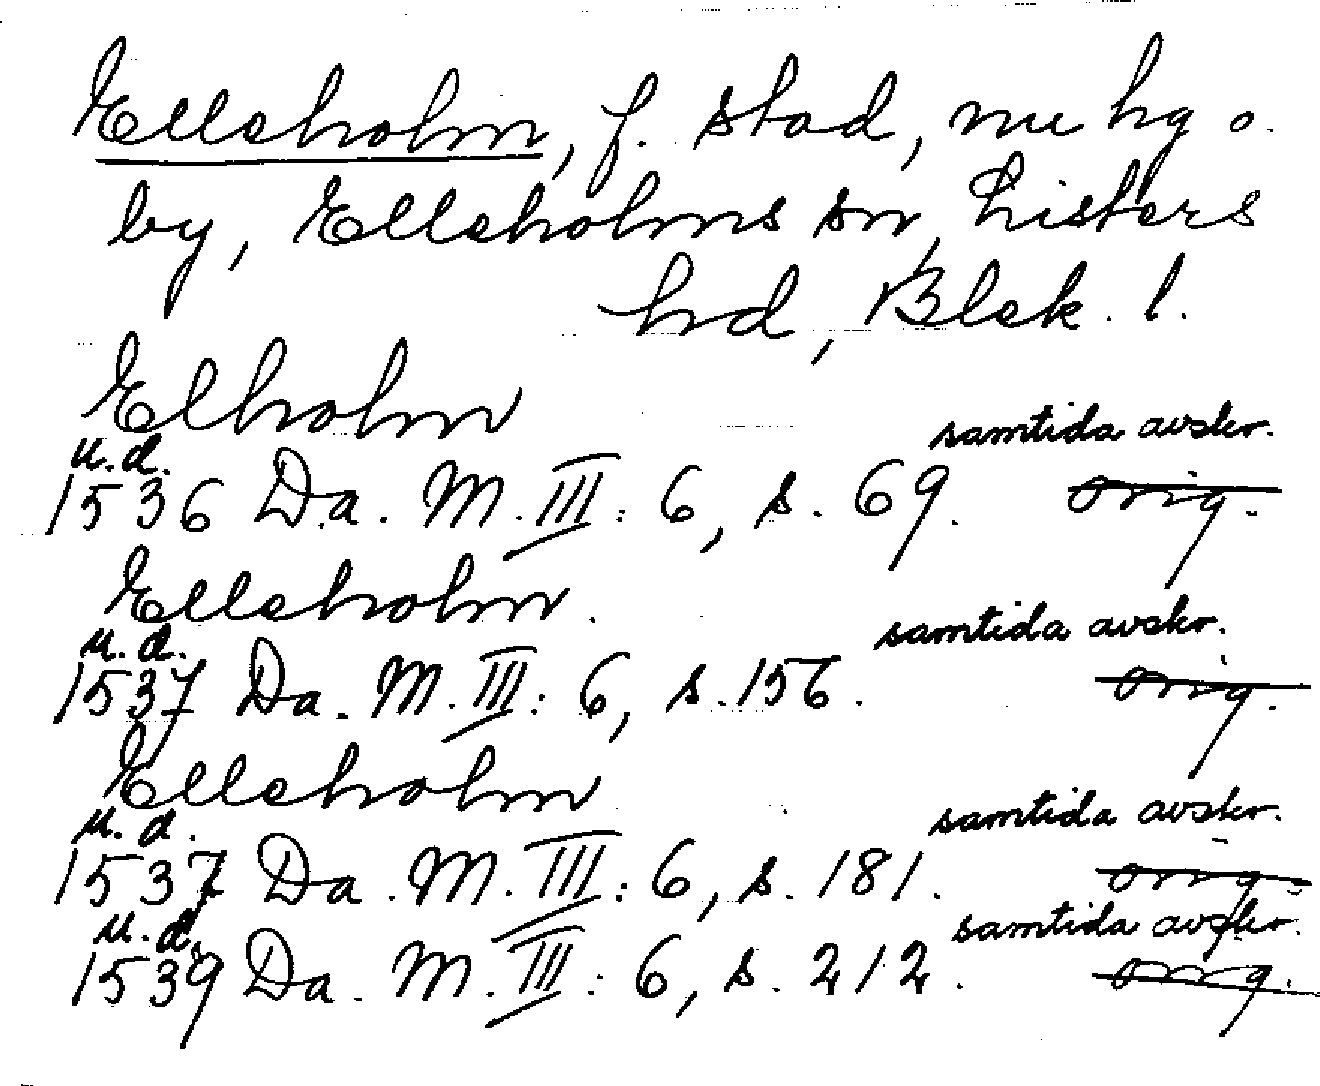 Elleholm, f. stad, nu hg o.
by, Elleholms sn, Listers
hd, Blek. l.
Elholm
samtida avskr.
u.d.
1536 Da. M. III: 6, s. 69. orig.
Elleholm.
samtida avskr.
u.d.
1537 Da. M. III: 6, s. 156. orig.
Elleholm
samtida avskr.
u.d.
1537 Da. M. III: 6, s. 181. orig.
samtida avskr.
u.d.
1539 Da. M. III: 6, s. 212. orig.